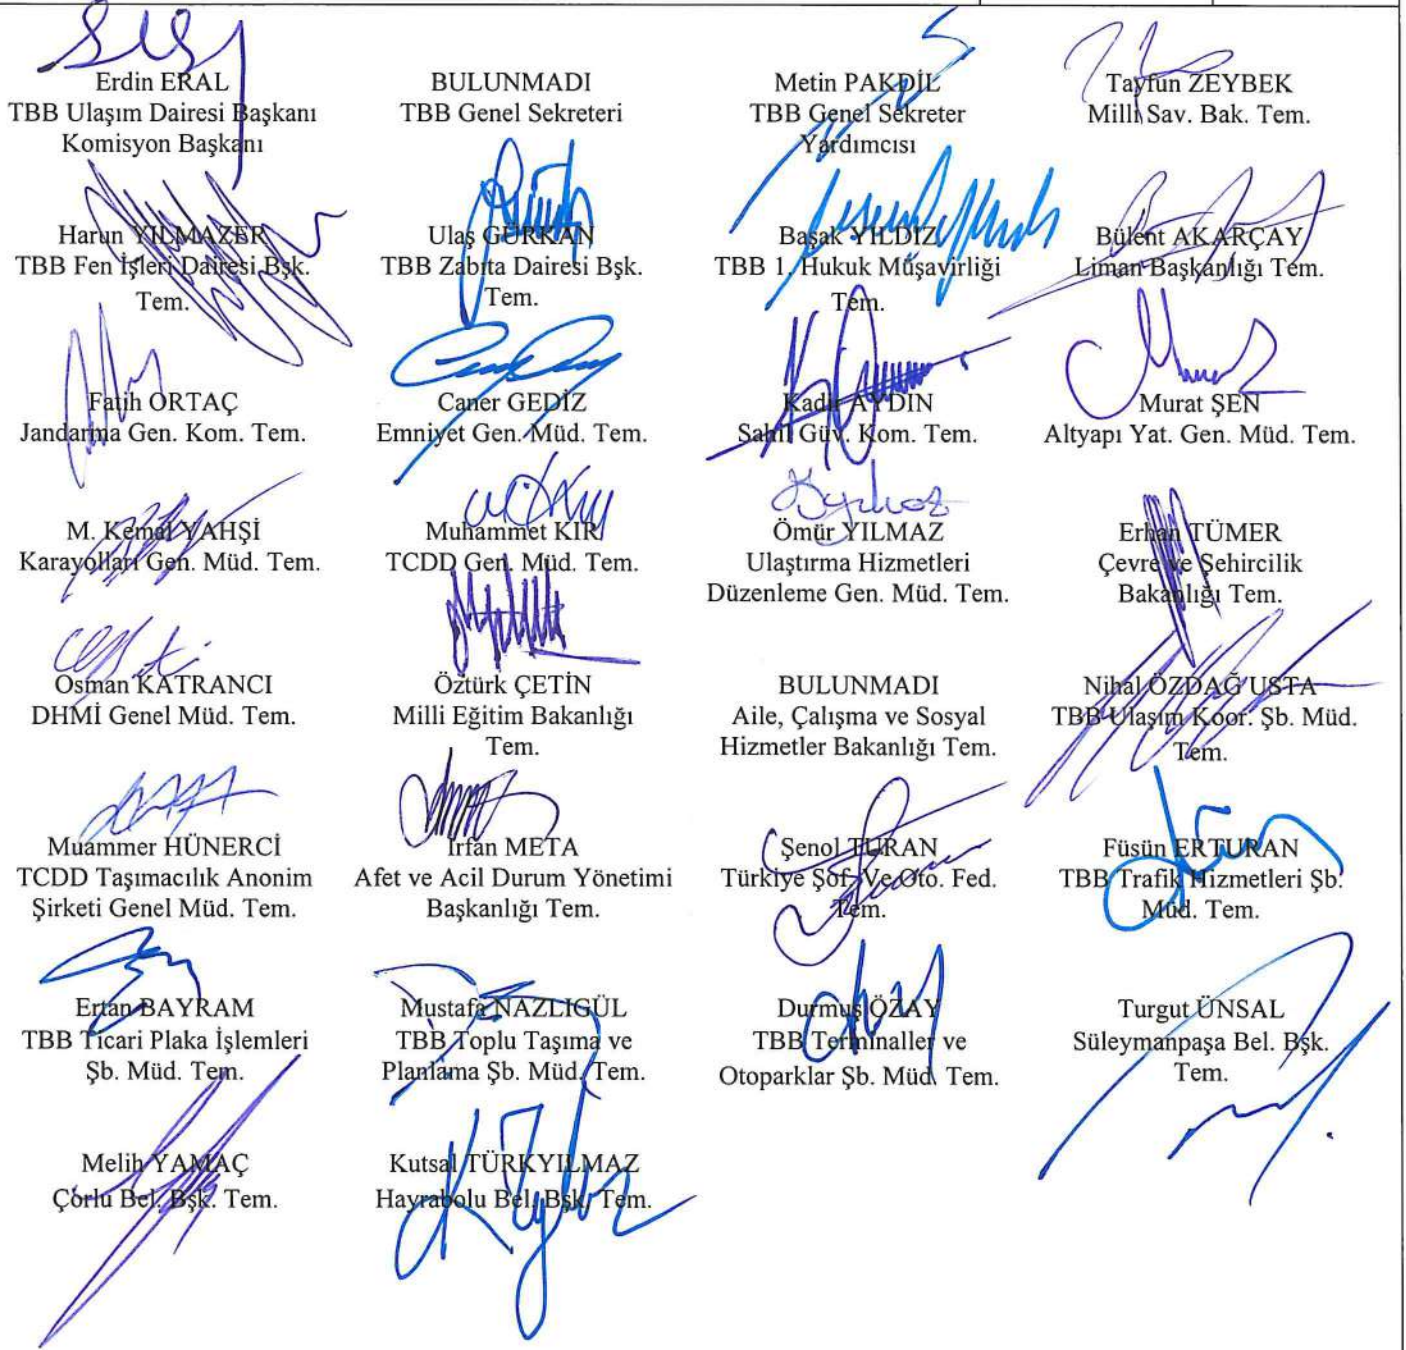 Erdin ERAL
TBB Ulaşım Dairesi Başkanı
Komisyon Başkanı
BULUNMADI
TBB Genel Sekreteri
Metin PAKDİL
TBB Genel Sekreter
Yardımcısı
Tayfun ZEYBEK
Milli Sav. Bak. Tem.
Harun YILMAZER
TBB Fen İşleri Dairesi Bşk.
Tem.
Ulaş GÜRKAN
TBB Zabıta Dairesi Bşk.
Tem.
Başak YILDIZ
TBB 1. Hukuk Müşavirliği
Tem.
Bülent AKARÇAY
Liman Başkanlığı Tem.
Fatih ORTAÇ
Jandarma Gen. Kom. Tem.
Caner GEDİZ
Emniyet Gen. Müd. Tem.
Kadir AYDIN
Sahil Güv. Kom. Tem.
Murat ŞEN
Altyapı Yat. Gen. Müd. Tem.
M. Kemal YAHŞİ
Karayolları Gen. Müd. Tem.
Muhammet KIR
TCDD Gen. Müd. Tem.
Ömür YILMAZ
Ulaştırma Hizmetleri
Düzenleme Gen. Müd. Tem.
Erhan TÜMER
Çevre ve Şehircilik
Bakanlığı Tem.
Osman KATRANCI
DHMİ Genel Müd. Tem.
Öztürk ÇETİN
Milli Eğitim Bakanlığı
Tem.
BULUNMADI
Aile, Çalışma ve Sosyal
Hizmetler Bakanlığı Tem.
Nihal ÖZDAĞ USTA
TBB Ulaşım Koor. Şb. Müd.
Tem.
Muammer HÜNERCİ
TCDD Taşımacılık Anonim
Şirketi Genel Müd. Tem.
İrfan META
Afet ve Acil Durum Yönetimi
Başkanlığı Tem.
Şenol TURAN
Türkiye Şof. Ve Oto. Fed.
Tem.
Füsün ERTURAN
TBB Trafik Hizmetleri Şb.
Müd. Tem.
Ertan BAYRAM
TBB Ticari Plaka İşlemleri
Şb. Müd. Tem.
Mustafa NAZLIGÜL
TBB Toplu Taşıma ve
Planlama Şb. Müd. Tem.
Durmuş ÖZAY
TBB Terminaller ve
Otoparklar Şb. Müd. Tem.
Turgut ÜNSAL
Süleymanpaşa Bel. Bşk.
Tem.
Melih YAMAÇ
Çorlu Bel. Bşk. Tem.
Kutsal TÜRKYILMAZ
Hayrabolu Bel. Bşk. Tem.